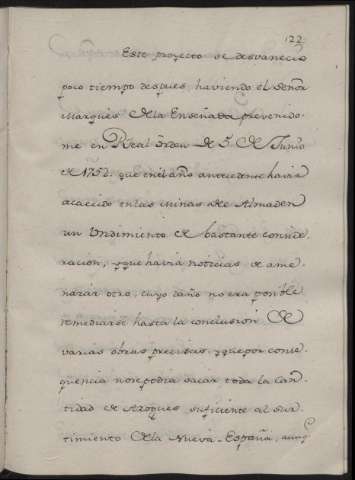 122
Este proyecto se desvanecio
poco tiempo despues, haviendo el Señor
Marques de la Ensenada prevenido-
me en Real orden de 5. de Junio
de 1752. que en el año antecedente havia
acaecido en las minas de Almaden
un Undimiento de bastante conside-
racion, y que havia noticias de ame-
nazar otro, cuyo daño no era posible
remediarse hasta la conclusion de
varias obras precisas, y que por conse-
quencia no se podia sacar toda la can-
tidad de Azogues suficiente al sur-
timiento de la Nueva-España, aunq